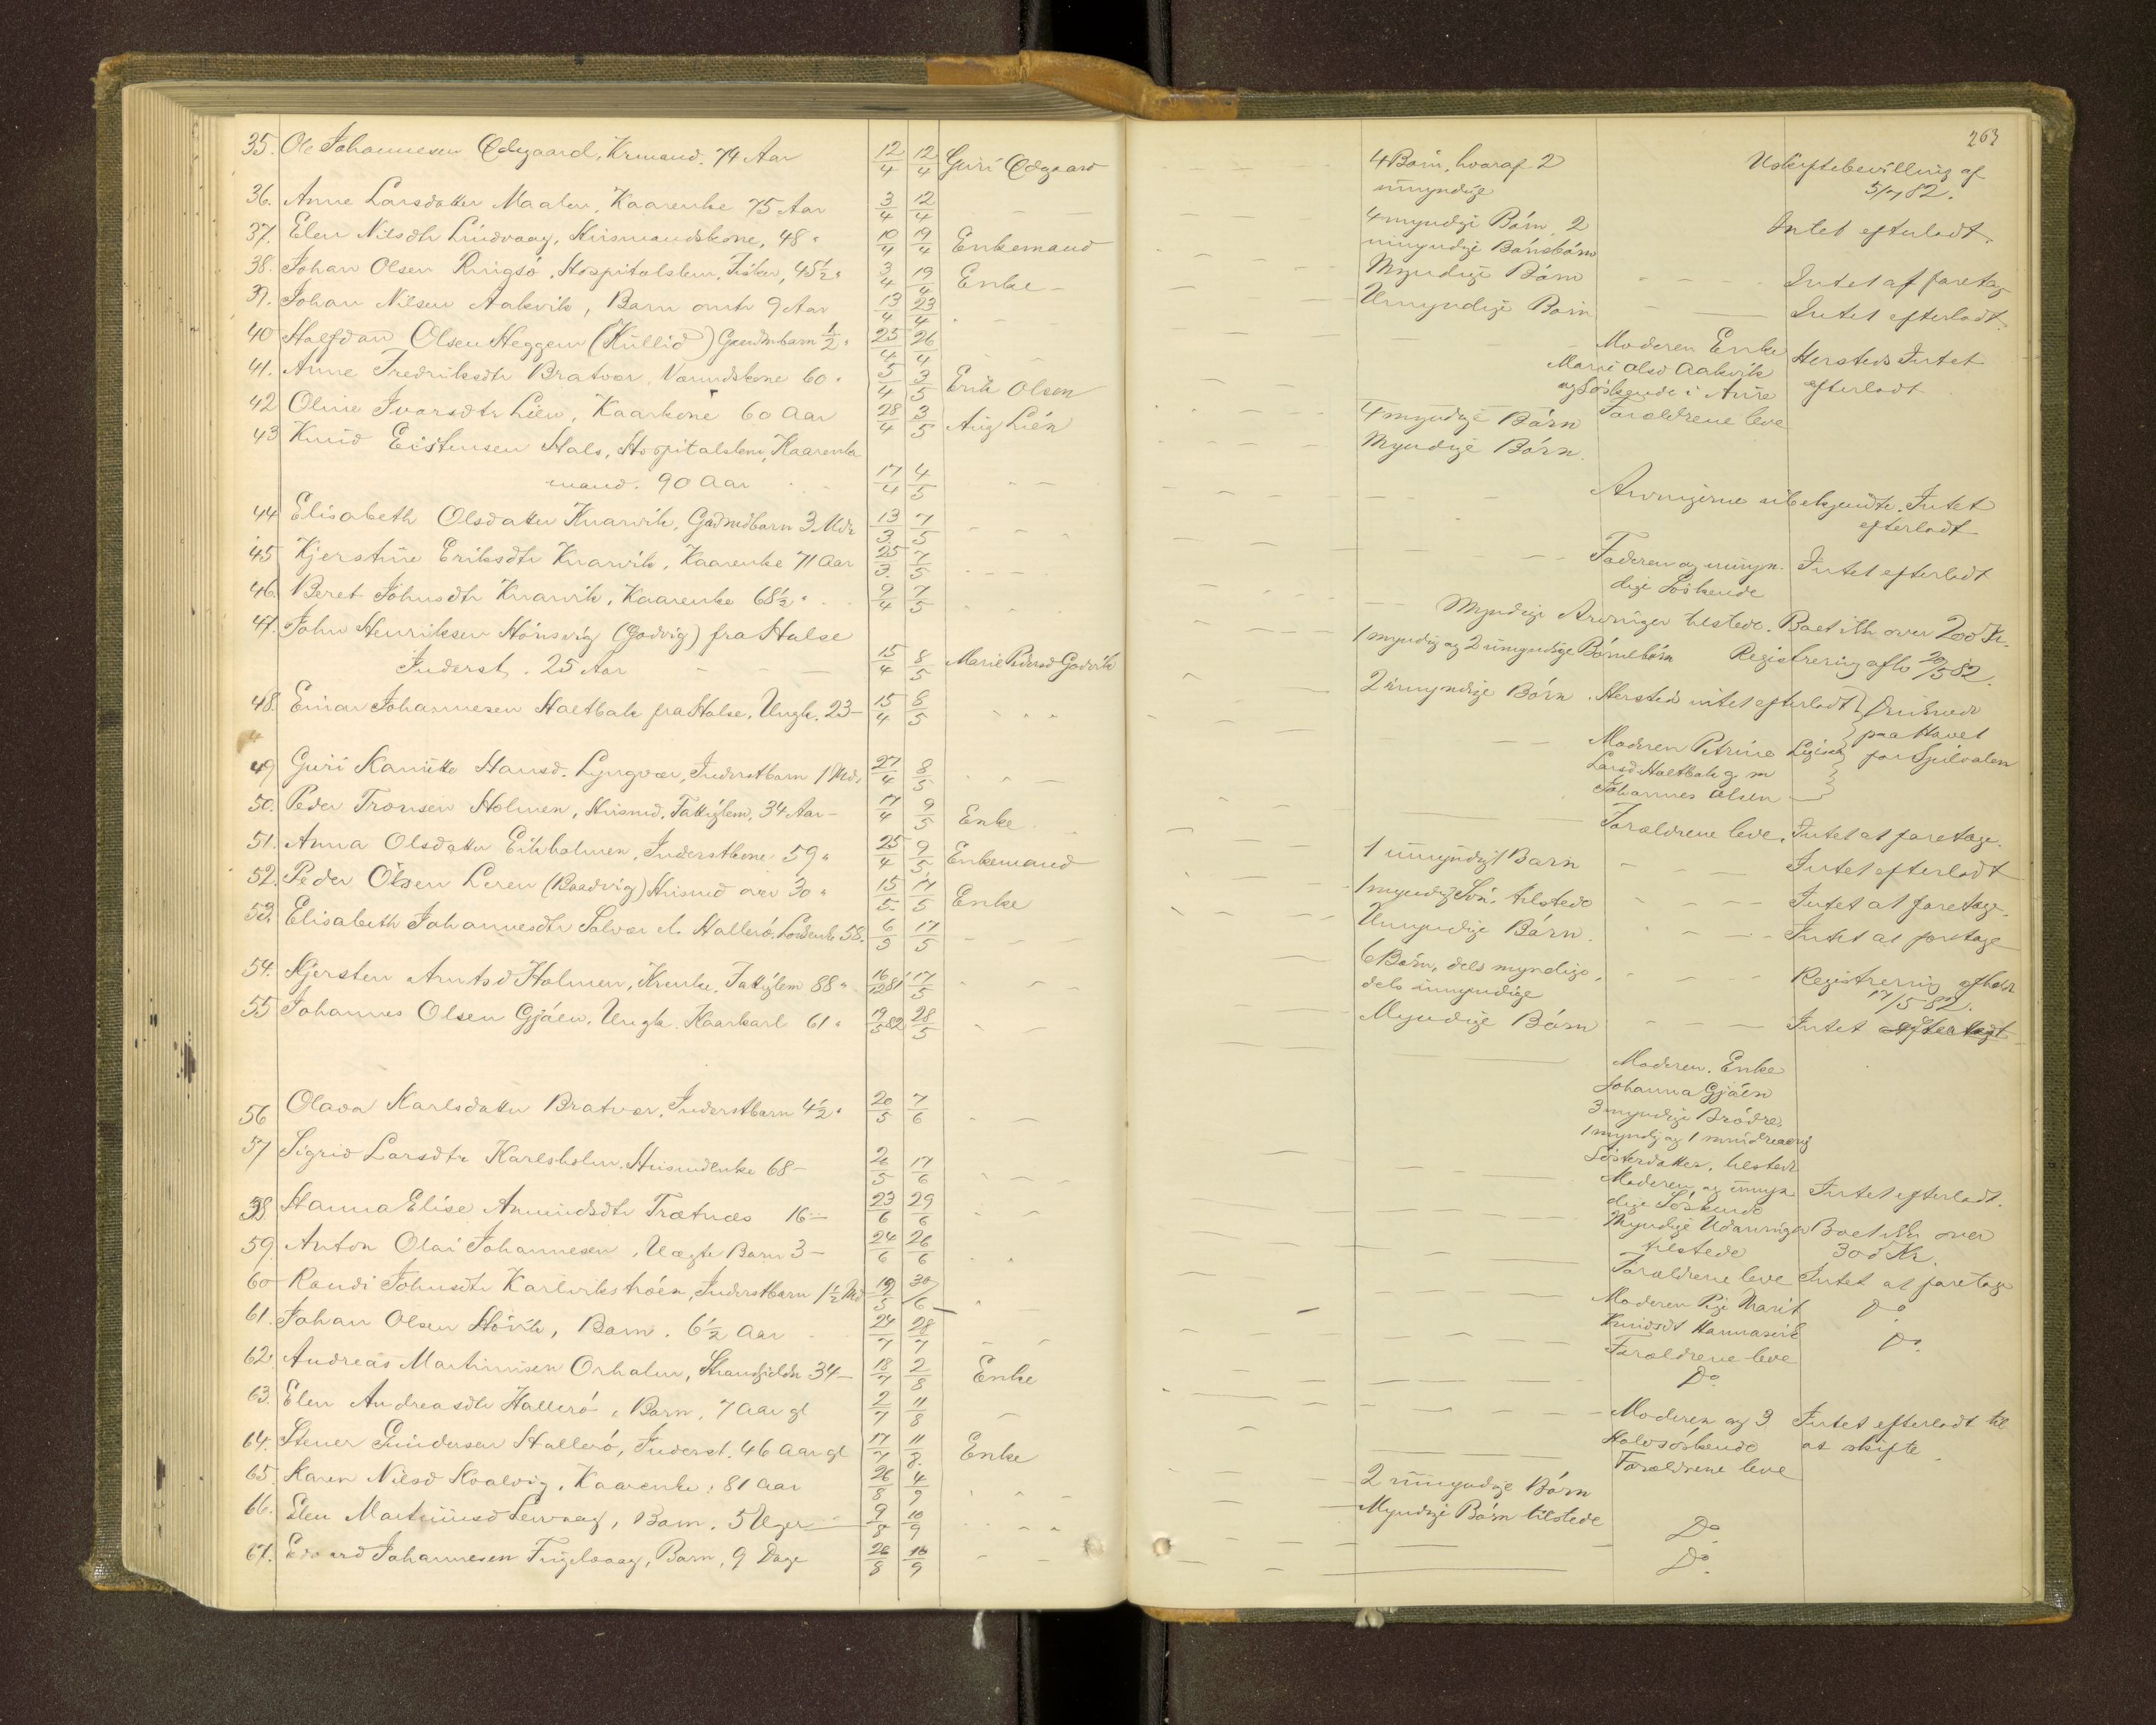 263
35. Ole Johannesen Ødegaard, Krmand. 74 Aar 12/4 12/4 Guri Ødegaard
36. Anne Larsdatter Maalen, Kaarenke 75 Aar 3/4 12/4
37. Elen Nilsdtr Lindvaag, Husmandskone, 48 " 10/4 19/4 Enkemand
38. Johan Olsen Ringsø, Hospitalslem, Fisker, 45½ " 3/4 19/4 Enke
39. Johan Nilsen Aakvik, Barn omtr 9 Aar 13/4 23/4
40 Halfdan Olsen Heggem (Kullid) Gaardmbarn ½ " 25/4 26/4
41. Anne Fredriksdtr Bratvær, 60 " 5/4 3/5 Erik Olsen
42 Oline Ivarsdtr Lien, Kaarkone 60 Aar 28/4 3/5 Aug Lien
43 Knud Eistensen Hals, Hospitalslem, Kaarenke
mand. 90 Aar 17/4 4/5
44 Elisabeth Olsdatter Knarvik, Gaardmdbarn 3 Mdr 13/3 7/5
45 Kjerstine Eriksdtr Knarvik, Kaarenke 71 Aar 25/3 7/5
46. Beret Johnsdtr Knarvik, Kaarenke 68½ " 9/4 7/5
47. John Henriksen Hønsvig (Godvig) fra Halse
Inderst. 25 Aar 15/4 8/5 Marie Pedersd Godvik
48. Einar Johannesen Haltbak fra Halse, Ungk. 23 — 15/4 8/5
49 Guri Kanutte Hansd. Lyngvær, Inderstbarn 1 Md. 27/4 8/5
50. Peder Tronsen Holmen, Husmd, Fattiglem, 34 Aar — 17/4 9/5 Enke
51. Anna Olsdatter Eikholmen, Inderstkone 59 " 25/4 9/5 Enkemand
52. Peder Olsen Leren (Baadvig) Husmd over 30 " 15/5 17/5 Enke
53. Elisabeth Johannesdtr Solvær el. Hallerø. 58. 6/5 17/5
54. Kjersten Arntsd Holmen, Krenke, Fattiglem 88 " 16/12 81 17/5
55 Johannes Olsen Gjøen, Ungk. Kaarkarl 61 " 19/5 82 28/5
56 Olava Karlsdatter Bratvær, Inderstbarn 4½ " 20/5 7/6
57 Sigrid Larsdtr Karlsholm, Husmdenke 68 — 26/5 17/6
58. Hanna Elise Amundsdtr Trætnæs 16 — 23/6 29/6
59. Anton Olai Johannesen, Uægte Barn 3 — 24/6 26/6
60 Randi Johnsdtr Karlvikstrøen, Inderstbarn 1½ Md 19/5 30/6
61. Johan Olsen Høvik, Barn. 6½ Aar 24/7 28/7
62. Andreas Martinusen Orholm, Strandsidder 34 — 18/7 2/8 Enke
63. Elen Andreasdtr Hallerø, Barn, 7 Aar gl 2/7 11/8
64. Stener Gundersen Hallerø, Inderst. 46 Aar gl 17/7 11/8 Enke
65. Karen Nilsd Kvalvig, Kaarenke, 81 Aar 26/8 4/9
66. Elen Martinusd Lervaag, Barn, 5 Uger 9/8 10/9
67. Edvard Johannesen Fuglevaag, Barn, 9 Dage 26/8 10/9
4 Børn, hvoraf 2
umyndige
Uskiftebevilling af
5/7 82.
4 myndige Børn, 2
umyndige Børnsbørn
Intet efterladt.
Myndige Børn
Intet at foretag
Umyndige Børn
Intet efterladt.
Moderen Enke
Mari Olsd Aakvik
og Søskende i Aure
Hersteds Intet
efterladt
Forældrene leve
4 myndige Børn
Myndige Børn.
Arvingerne ubekjendte. Intet
efterladt
Faderen og umyn-
dige Søskende
Intet efterladt
Myndige Arvinger tilstede. Boet ikke over 200 Kr.
1 myndig og 2 umyndige Børnebørn Registrering afh 20/5 82.
2 umyndige Børn. Hersteds intet efterladt
Druknede
paa Havet
for Spilvalen
Moderen Petrine
Larsd Haltbak g. m
Johannes Olsen
Ligesaa
Forældrene leve. Intet at foretage.
1 umyndigt Barn
Intet efterladt
1 myndig Søn, tilstede
Intet at foretage.
Umyndige Børn.
Intet at foretage
6 Børn, dels myndige,
dels umyndige
Registrering afholdt
17/5 82.
Myndige Børn
Intet efterladt
Moderen, Enke
Johanna Gjøen
3 myndige Brødre,
1 myndig og 1 mindreaarig
Søsterdatter, tilstede
Moderen og umyn
dige Søskende
Intet efterladt.
Myndige Udarvinger
tilstede
Boet ikke over
300 Kr.
Forældrene leve Intet at foretage
Moderen Pige Marit
Knudsdt Hamnasvik
Do.
Forældrene leve Do.
Do.
Moderen og 3
Halvsøskende
Intet efterladt til
at skifte.
Forældrene leve
2 umyndige Børn
Myndige Børn tilstede
Do.
Do.